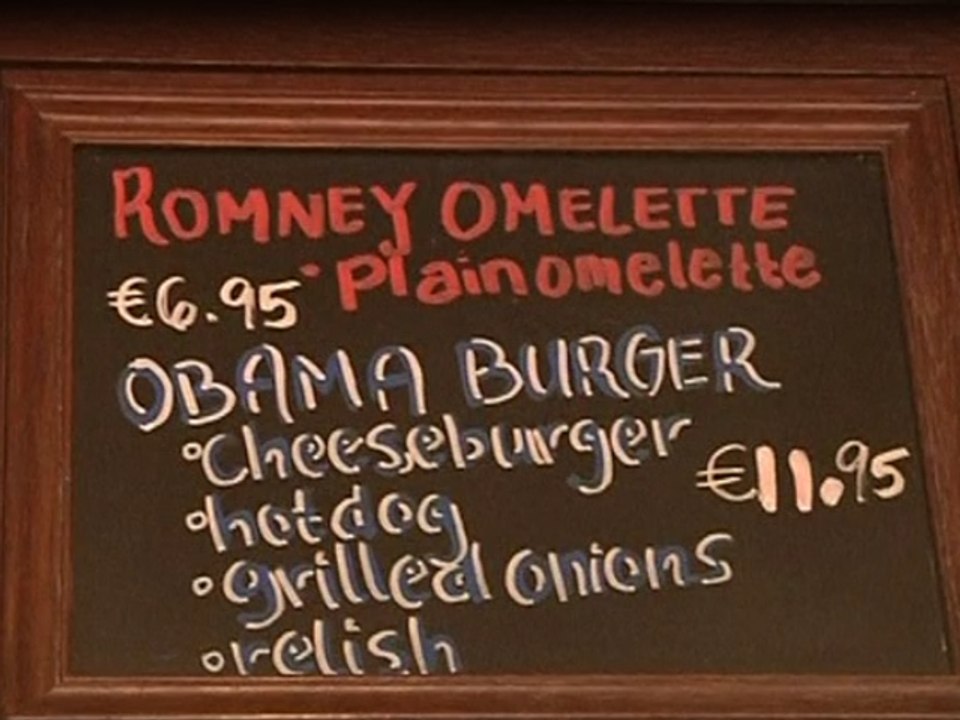 ROMNEY OMELETTE
• plain omelette
€6.95
OBAMA BURGER
• cheeseburger
€11.95
• hotdog
• grilled onions
• relish